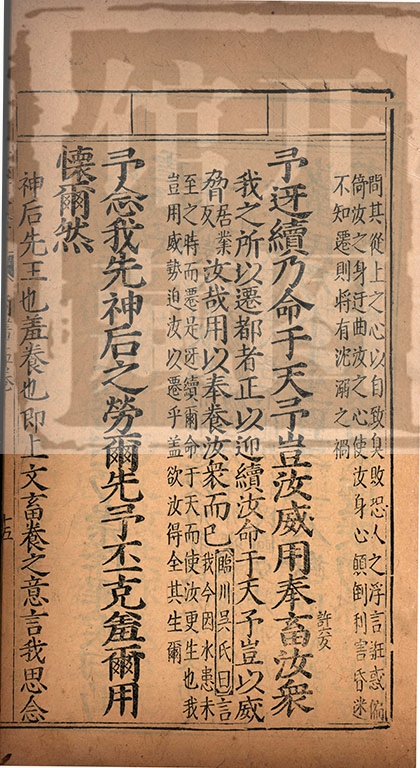 問其從上之心以自致臭敗恐人之浮言誑惑偏
倚汝之身迂曲汝之心使汝身心顛倒利害昏迷
不知遷則將有沈溺之禍
予迓續乃命于天予豈汝威用奉畜汝衆
許六反
我之所以遷都者正以迎續汝命于天予豈以威
脅汝哉用以奉養汝衆而已臨川吳氏曰言
我今因水患未
及居業
至之時而遷是迓續爾命于天而使汝更生也我
豈用威勢迫汝以遷乎蓋欲汝得全其生爾
予念我先神后之勞爾先予丕克羞爾用
懷爾然
神后先王也羞養也即上文畜養之意言我思念
十五